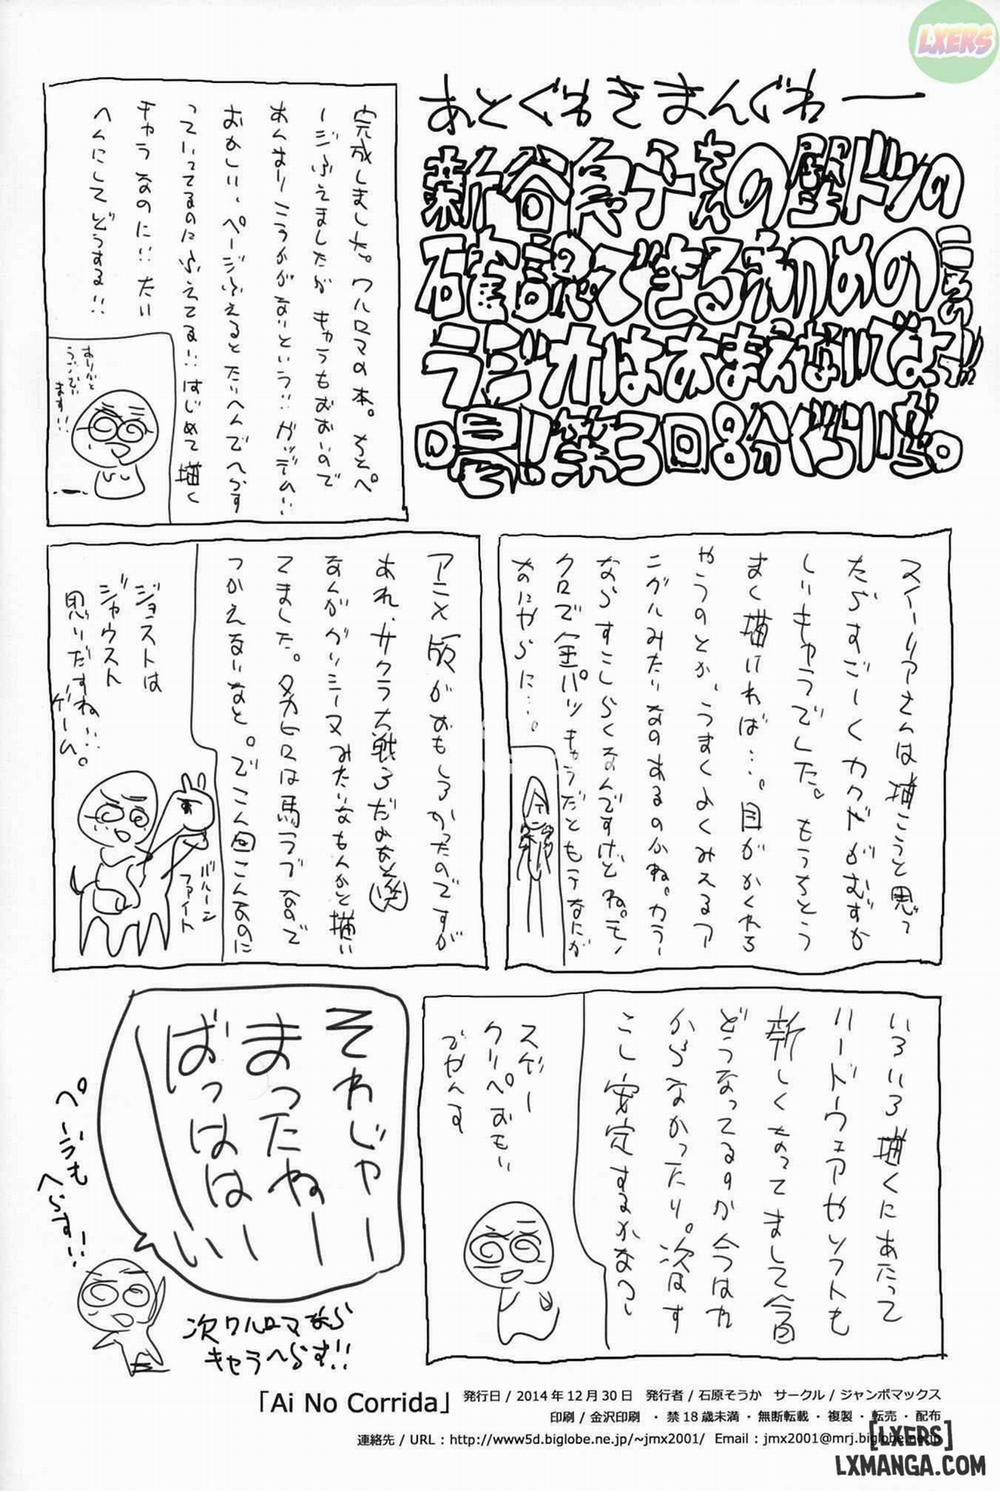 LXERS
あとぐわきまんぐわー
新谷良子さんの壁ドンの
確認できる初めの
ラジカはあまえないでよっ!!
喝!第3回8分ぐらい
完成しました。ワルロマの本。そしてペ
ージふえましたがキャラもおおいので
あんまりこうかがないという… ガッデム!!
おかしい、ページふえるとたいへんでへらす
っていってるのにふえてる!! はじめて描く
キャラなのに!! たい
へんにしてどうする!!
ありがとう
ございます!!
スイーリアさんは描こうと思っ
たらすごーくカクがむずか
しいキャラでした。もうちょっと
まく描ければ…。目がかくれる
やうのとか、うまくよくみえるア
ングルみたいなのあるのかね。カラー
ならすこしらくなんですけどね。モノ
クロで金パツキャラだともうなにが
なにやらに…。
アニメ版がおもしろかったのですが
あれ、サクラ大戦3だよなと(笑)
なんかパンニーヌみたいなもんかと描い
てました。タカヒロは馬ラブなので
つかえるなと。でこん回こんなのに
ジョストは
ジャウスト
思いだすね…
ゲーム。
バルーン
ファイト
いろいろ描くにあたって
ハードウェアやソフトも
新しくなってまして今
どうなってるすか今はわ
からなかったり。次はす
こし安定するかなっ
スゲー
クリペおもい
でやんす
それじゃー
まったねー
ばっはは
ーい
ページも
へらす!!
次ワルロマなら
キャラへらす!!
「Ai No Corrida」 発行日 / 2014 年 12 月 30 日 発行者 / 石原そうか サークル / ジャンボマックス
印刷 / 金沢印刷 ・ 禁 18 歳未満 ・ 無断転載 ・ 複製 ・ 転売 ・ 配布
連絡先 / URL : http://www5d.biglobe.ne.jp/~jmx2001/ Email : jmx2001@mrj.biglobe.ne.jp
[LXERS]
LXMANGA.COM